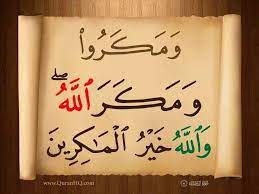 وَمَكَرُوا۟
وَمَكَرَ ٱللَّهُ ۖ
وَٱللَّهُ خَيْرُ ٱلْمَـٰكِرِينَ
www.QuranHQ.com